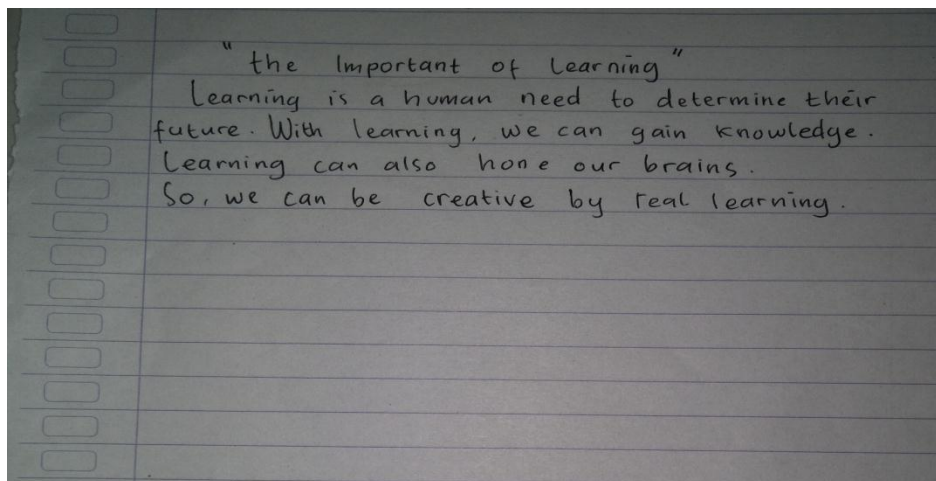 "the Important of Learning"
Learning is a human need to determine their
future. With learning, we can gain knowledge.
Learning can also hone our brains.
So, we can be creative by real learning.